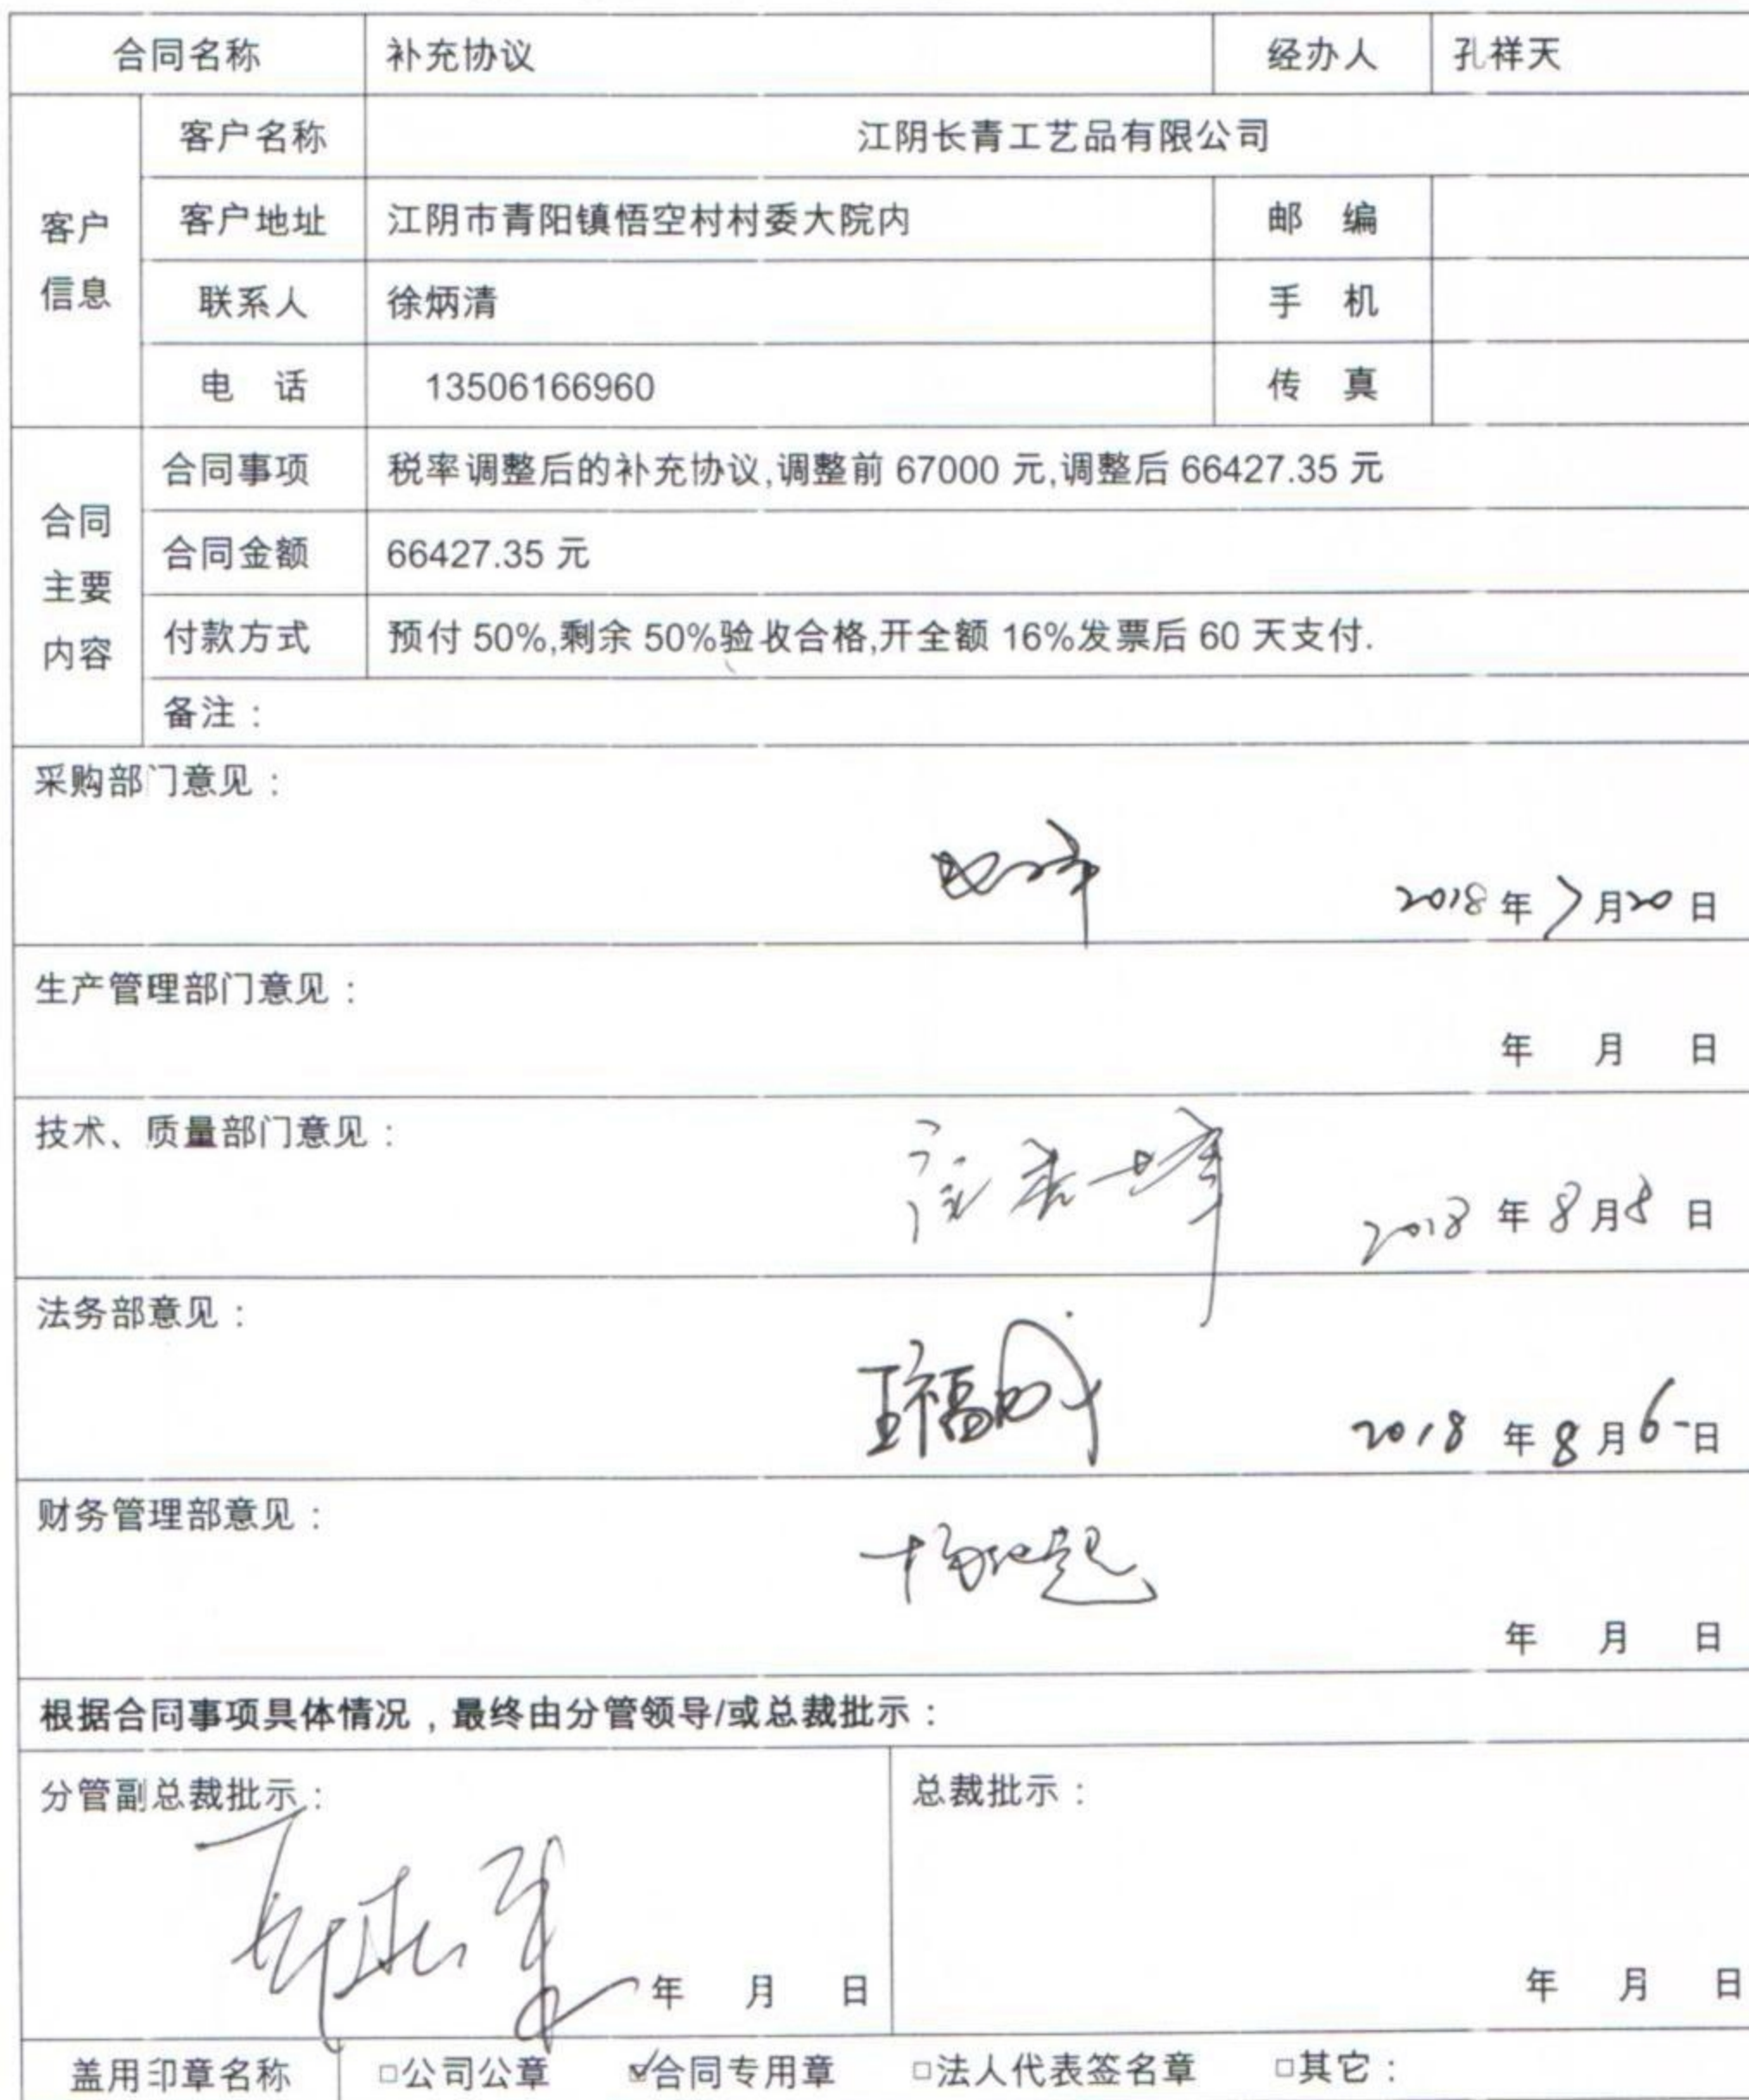 合同名称 补充协议 经办人 孔祥天
客户信息
客户名称 江阴长青工艺品有限公司
客户地址 江阴市青阳镇悟空村村委大院内 邮 编
联系人 徐炳清 手 机
电 话 13506166960 传 真
合同主要内容
合同事项 税率调整后的补充协议,调整前 67000 元,调整后 66427.35 元
合同金额 66427.35 元
付款方式 预付 50%,剩余 50%验收合格,开全额 16%发票后 60 天支付.
备注：
采购部门意见：
2018 年 7 月 20 日
生产管理部门意见：
年 月 日
技术、质量部门意见：
2018 年 8 月 8 日
法务部意见：
2018 年 8 月 6 日
财务管理部意见：
年 月 日
根据合同事项具体情况，最终由分管领导/或总裁批示：
分管副总裁批示： 总裁批示：
年 月 日 年 月 日
盖用印章名称 □公司公章 ☑合同专用章 □法人代表签名章 □其它：